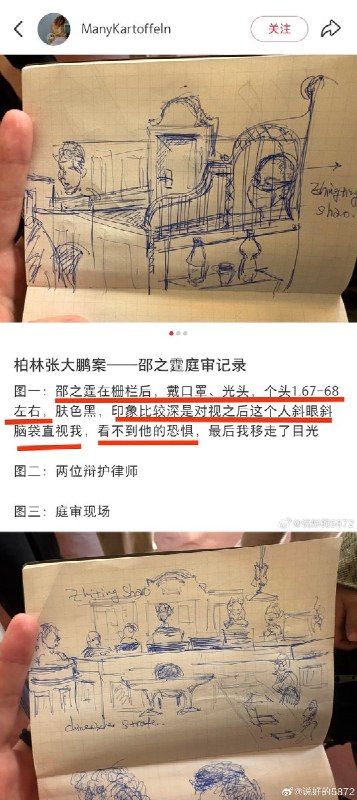 ManyKartoffeln
关注
Zhiting
Shao.
柏林张大鹏案——邵之霆庭审记录
图一：邵之霆在栅栏后，戴口罩、光头，个头1.67-68
左右，肤色黑，印象比较深是对视之后这个人斜眼斜
脑袋直视我，看不到他的恐惧，最后我移走了目光
图二：两位辩护律师
图三：庭审现场
@说好的5872
Zhiting Shao
@说好的5872